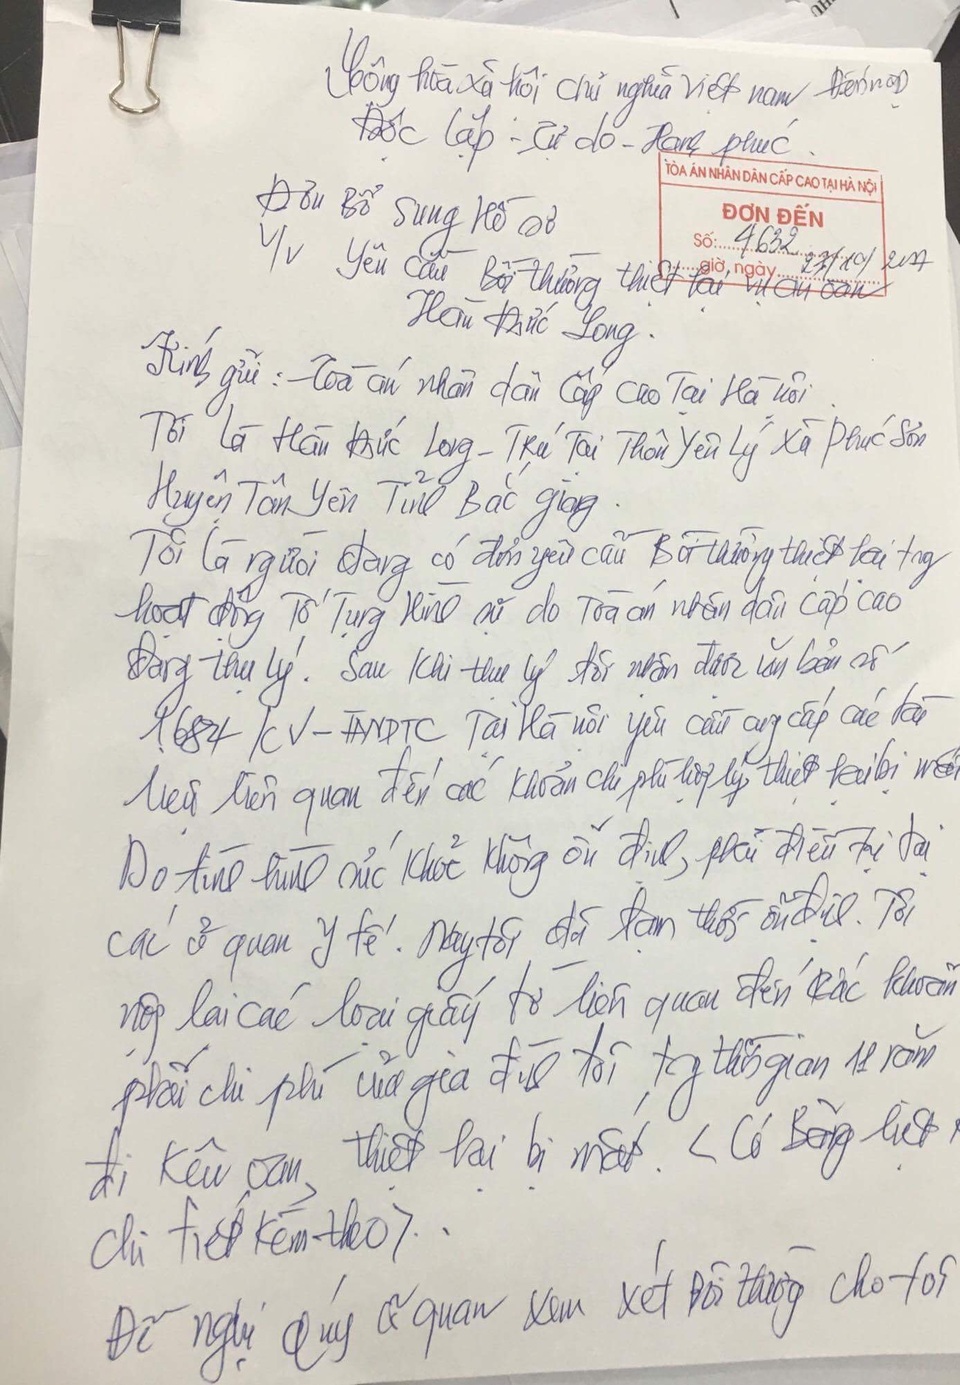 Cộng hòa xã hội chủ nghĩa Việt nam
Độc lập - Tự do - Hạnh phúc.
TÒA ÁN NHÂN DÂN CẤP CAO TẠI HÀ NỘI
ĐƠN ĐẾN
Số: 4632
giờ, ngày 27/10/2017
Đơn Bổ Sung Hồ sơ
V/v Yêu cầu Bồi thường thiệt hại vụ án oan
Hàn Đức Long.
Kính gửi: - Toà án nhân dân Cấp cao Tại Hà nội.
Tôi là Hàn Đức Long - Trú Tại Thôn Yên Lý Xã Phúc Sơn
Huyện Tân Yên Tỉnh Bắc giang.
Tôi là người đang có đơn yêu cầu Bồi thường thiệt hại trg
hoạt động Tố Tụng Hình sự do Toà án nhân dân cấp cao
đang thụ lý. Sau khi thụ lý tôi nhận được văn bản số
1684/CV-TANDTC Tại Hà nội yêu cầu cung cấp các tài
liệu liên quan đến các khoản chi phí hợp lý, thiệt hại bị mất
Do tình hình sức khoẻ không ổn định, phải điều trị tại
các cơ quan y tế. Nay tôi đã tạm thời ổn định. Tôi
nộp lại các loại giấy tờ liên quan đến các khoản
phải chi phí của gia đình tôi trg thời gian 11 năm
đi kêu oan, thiệt hại bị mất. < Có Bảng liệt
chi tiết kèm theo>.
Đề nghị Quý cơ quan xem xét Bồi thường cho tôi